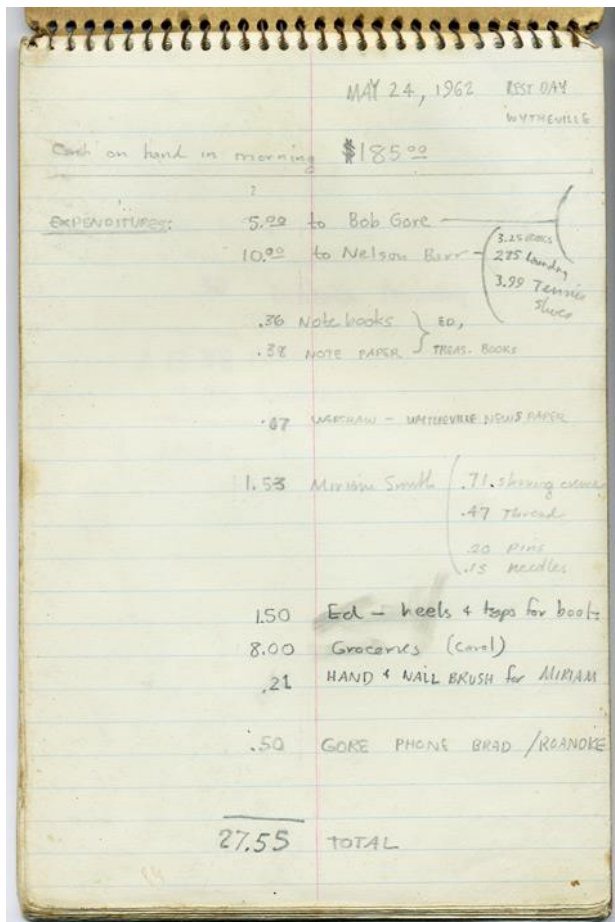 MAY 24, 1962 REST DAY
WYTHEVILLE
Cash on hand in morning $185.00
EXPENDITURES: 5.00 to Bob Gore
10.00 to Nelson Barr
3.25 BOOKS
2.75 laundry
3.99 Tennis
Shoes
.36 Notebooks } ED,
.38 NOTE PAPER TREAS. BOOKS
.07 WARSHAW - WYTHEVILLE NEWSPAPER
1.53 Miriam Smith .71 shaving cream
.47 Thread
.20 Pins
.15 needles
1.50 Ed - heels & taps for boots
8.00 Groceries (Carol)
.21 HAND & NAIL BRUSH for MIRIAM
.50 GORE PHONE BRAD / ROANOKE
27.55 TOTAL